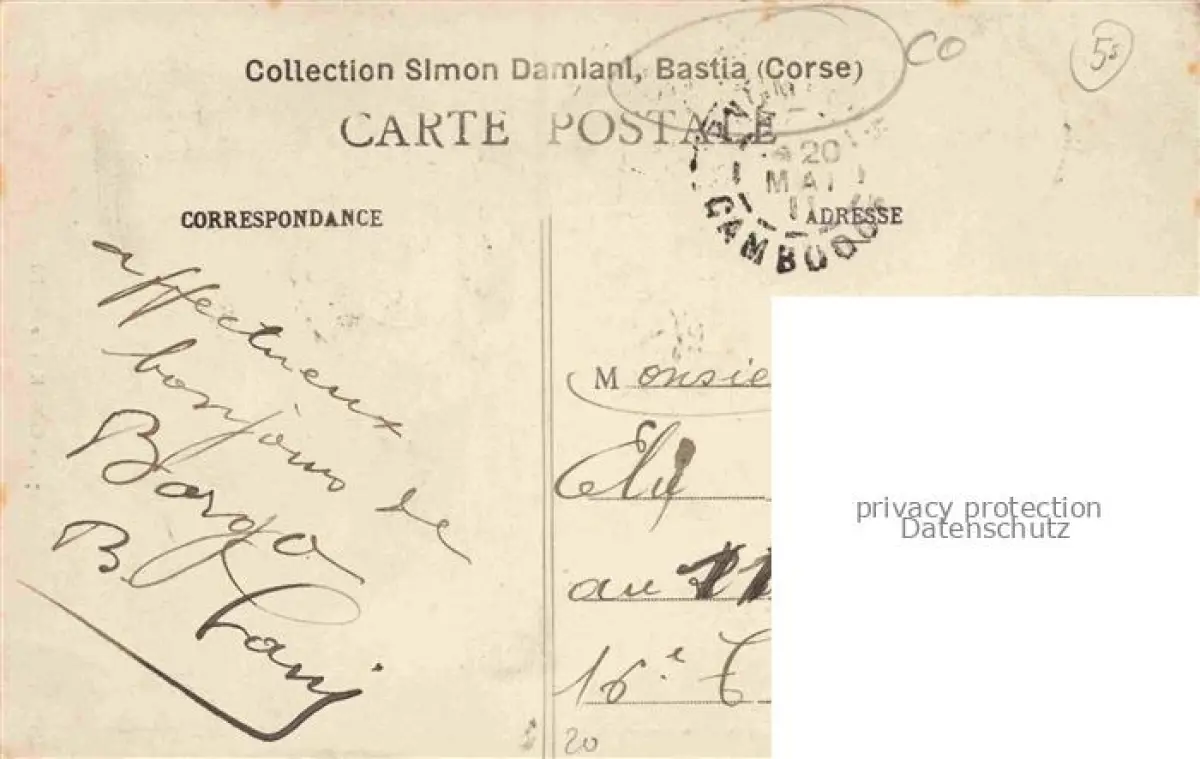 CO
5s
Collection Simon Damiani, Bastia (Corse)
CARTE POSTALE
20
MAI
11
CAMBODGE
CORRESPONDANCE
ADRESSE
affectueux
bonjour de
Borgo
B.
Monsie
au
16e
20
privacy protection
Datenschutz